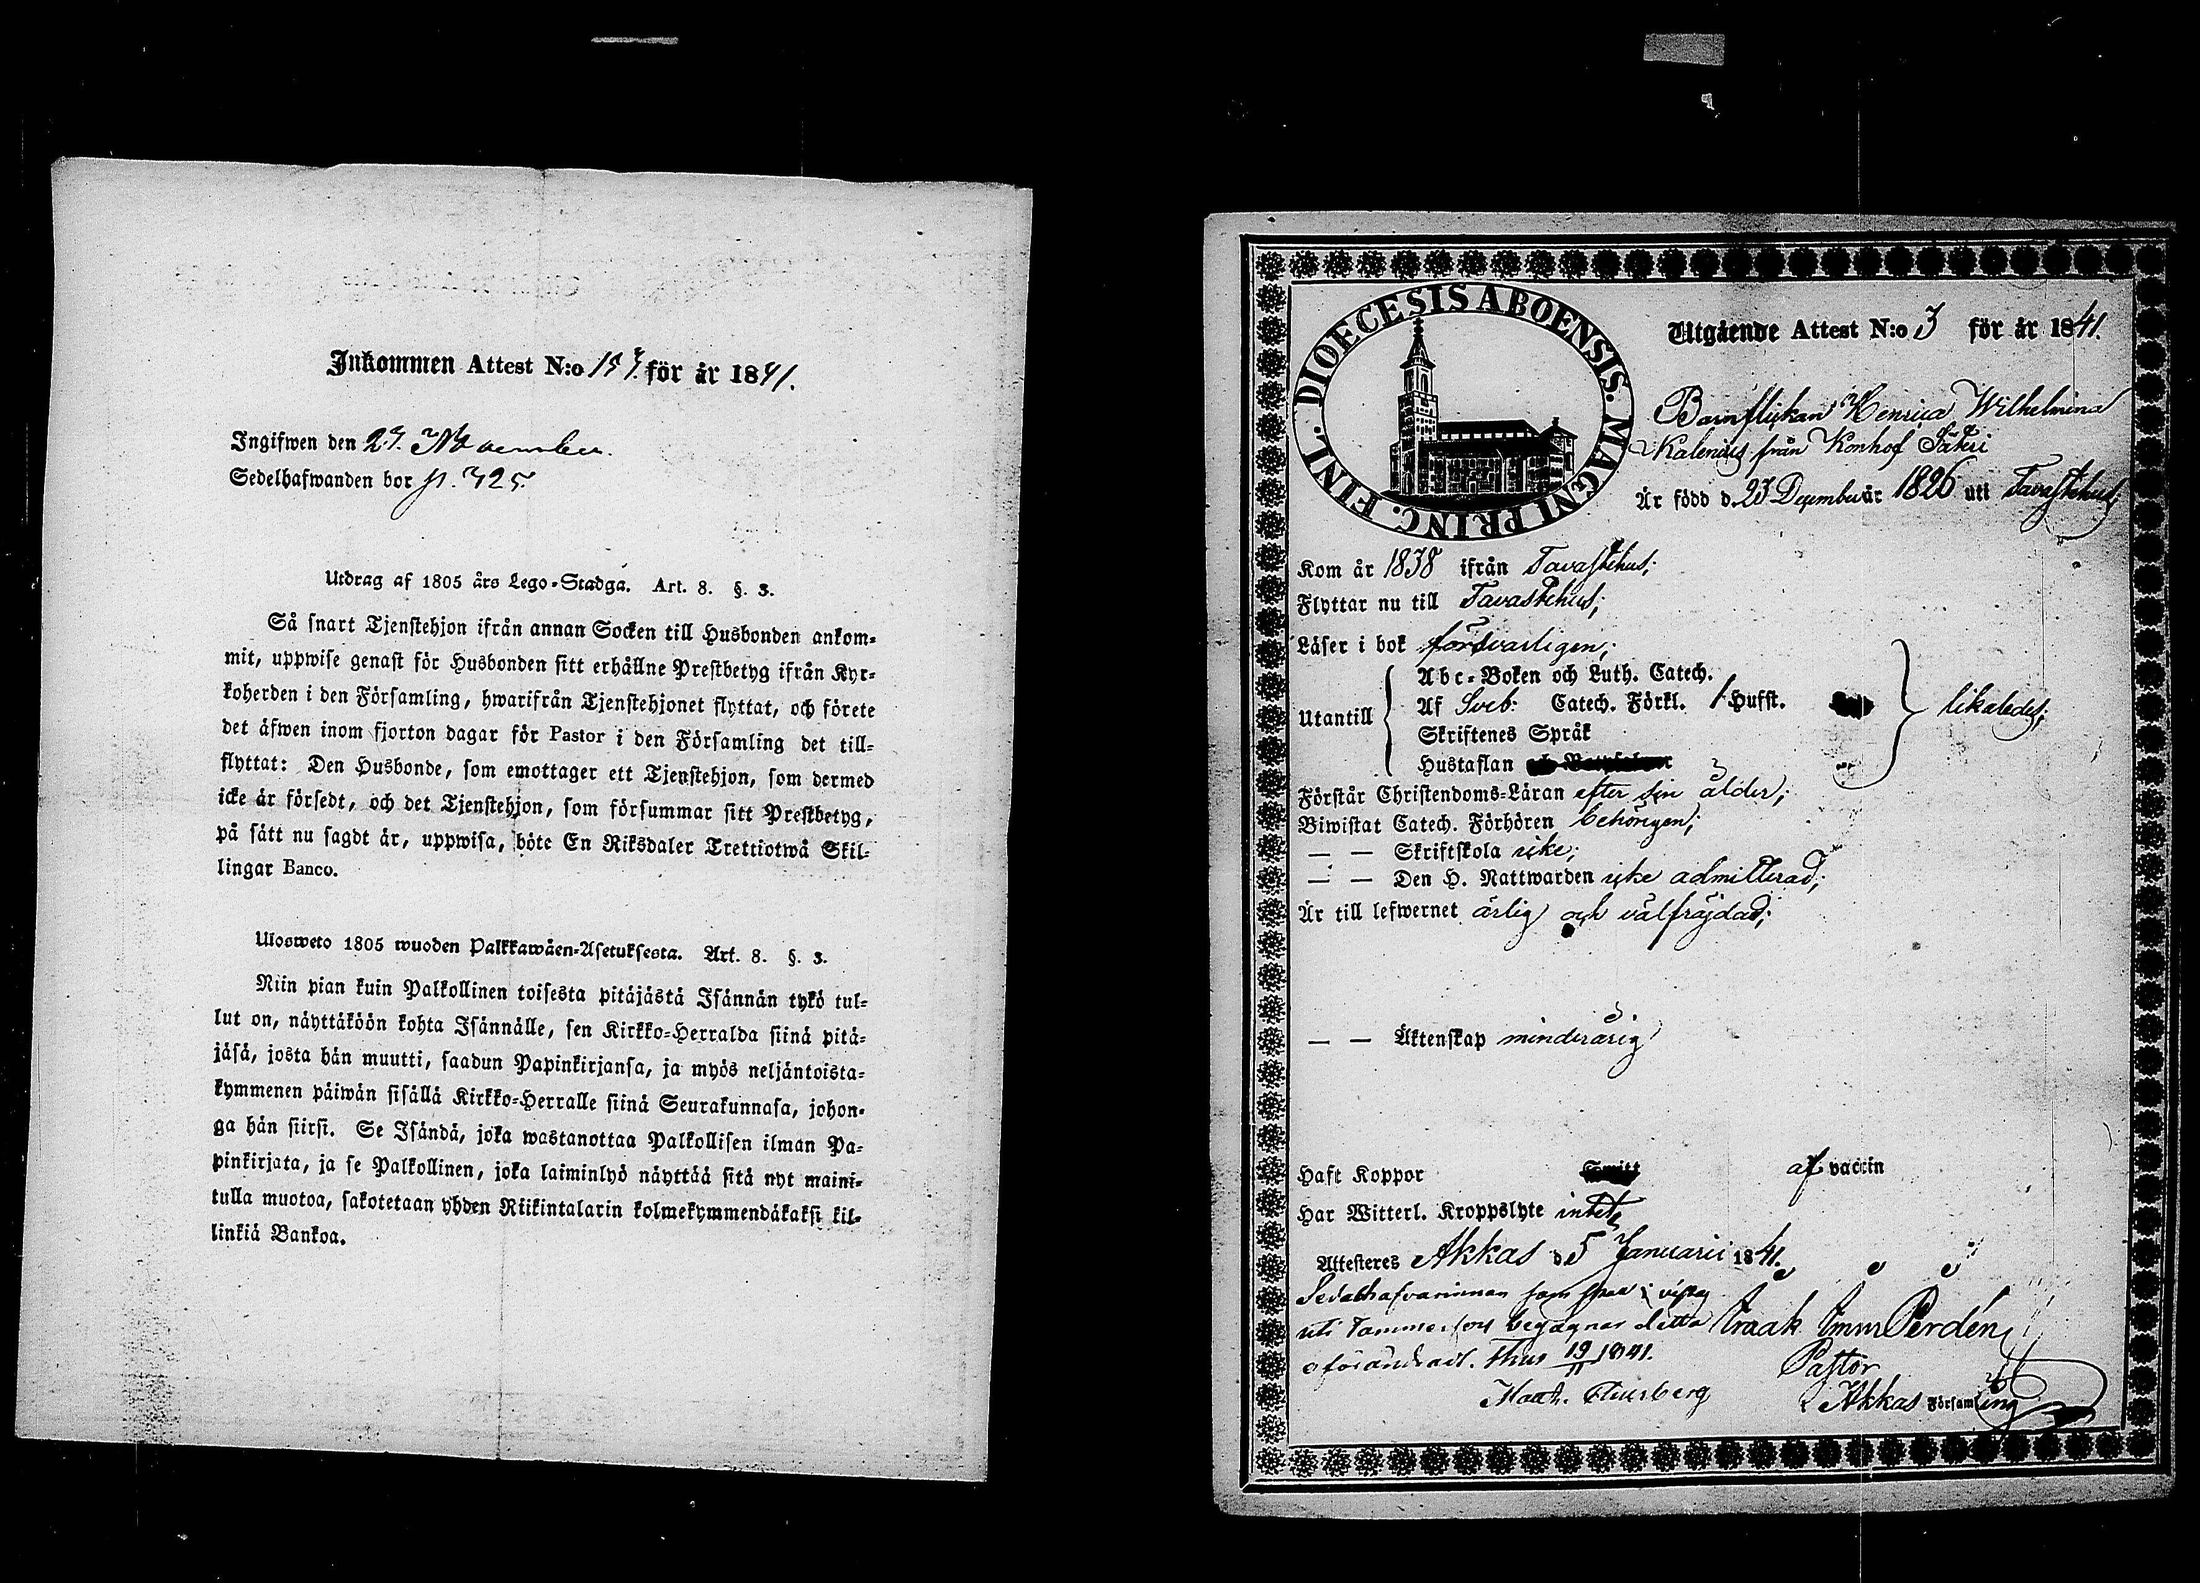 Inkommen Attest N:o 157. för år 1841.
Ingifwen den 27. November.
Sedelhafwanden bor p. 325.
Utdrag af 1805 års Lego-Stadga. Art. 8. §. 3.
Så snart Tjenstehjon ifrån annan Socken till Husbonden ankom-
mit, uppwise genast för Husbonden sitt erhållne Prestbetyg ifrån Kyr-
koherden i den Församling, hwarifrån Tjenstehjonet flyttat, och förete
det äfwen inom fjorton dagar för Pastor i den Församling det till-
flyttat: Den Husbonde, som emottager ett Tjenstehjon, som dermed
icke är försedt, och det Tjenstehjon, som försummar sitt Prestbetyg,
på sätt nu sagdt är, uppwisa, böte En Riksdaler Trettiotwå Skil-
lingar Banco.
Ulosweto 1805 wuoden Palkkawäen-Asetuksesta. Art. 8. §. 3.
Niin pian kuin Palkollinen toisesta pitäjästä Isännän tykö tul-
lut on, näyttäköön kohta Isännälle, sen Kirkko-Herralda siinä pitä-
jäsä, josta hän muutti, saadun Papinkirjansa, ja myös neljäntoista-
kymmenen päiwän sisällä Kirkko-Herralle siinä Seurakunnasa, johon-
ga hän siirsi. Se Isändä, joka wastanottaa Palkollisen ilman Pa-
pinkirjata, ja se Palkollinen, joka laiminlyö näyttää sitä nyt maini-
tulla muotoa, sakotetaan yhden Riikintalarin kolmekymmendäkaksi kil-
linkiä Bankoa.
DIOECESIS ABOENSIS. MAGNI PRINC. FINL.
Utgående Attest N:o 3 för år 1841.
Barnflickan Henrica Wilhelmina
Kalenius från Konhof Säteri
Är född d. 23 December år 1826 uti Tavastehus;
Kom år 1838 ifrån Tavastehus;
Flyttar nu till Tavastehus;
Läser i bok försvarligen;
Abc-Boken och Luth. Catech.
Utantill Af Sveb. Catech. Förkl. / Hufst. likaledes;
Skriftenes Språk
Hustaflan
Förstår Christendoms-Läran efter sin ålder;
Biwistat Catech. Förhören behörigen;
— — Skriftskola icke;
— — Den H. Nattwarden icke admitterad;
Är till lefwernet ärlig och välfräjdad;
— — Äktenskap minderårig
Haft Koppor af vaccin
Har Witterl. Kroppslyte intet
Attesteres Akkas d 5 Januarii 1841.
Sedelhafvarinnan som
uti Tammerfors begagnar detta
oförändradt. Thus 19/11 1841.
Isaak Perdén
Pastor
i Akkas Församling